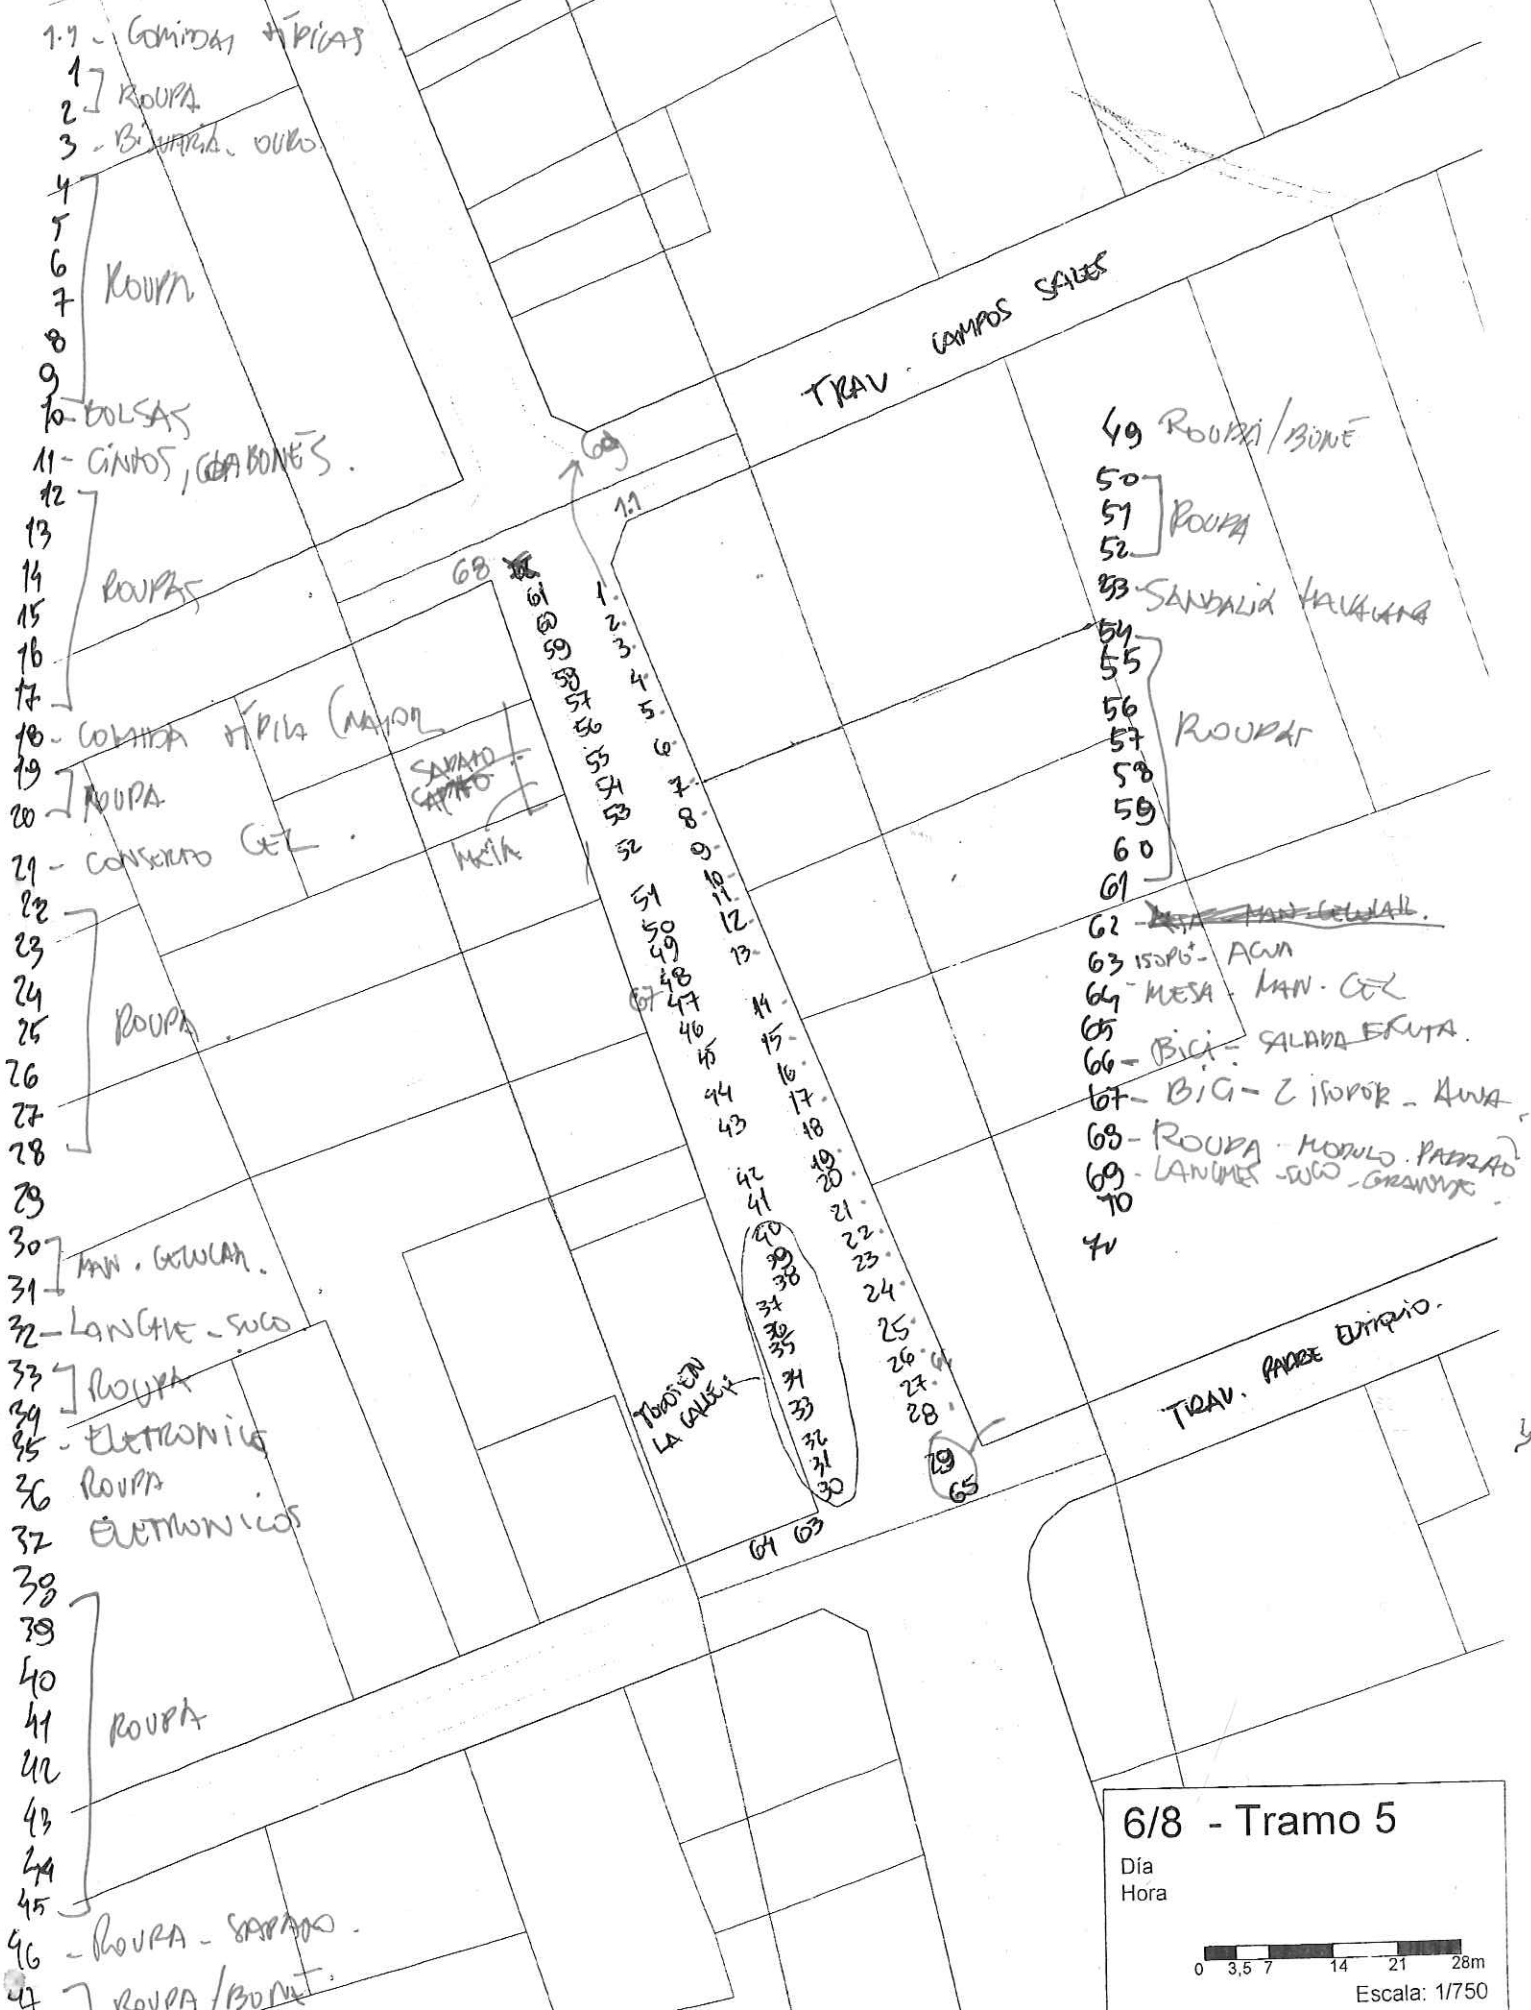 1.1 - COMIDAS TÍPICAS
1
2 ] ROUPA
3 - BIJUTARIA - OURO
4
5
6
7
8
9
ROUPA
10 - BOLSAS
11 - CINTOS, BONÉS.
12
13
14
15
16
17
ROUPAS
18 - COMIDA TÍPICA (MAIOR
19
20 ] ROUPA
21 - CONSERTO CEL.
22
23
24
25
26
27
28
ROUPA
29
30
31 ] MAN. CELULAR.
32 - LANCHE - SUCO
33
34 ] ROUPA
35 - ELETRONICO
36 ROUPA
37 ELETRONICOS
38
39
40
41
42
43
44
45
ROUPA
46 - ROUPA - SAPATO.
47 ] ROUPA/BONÉ.
TRAV. CAMPOS SALES
69
1.1
68
61
60
59
58
57
56
55
54
53
52
51
50
49
48
67 47
46
45
44
43
42
41
40
39
38
37
36
35
34
33
32
31
30
64 63
1.
2.
3.
4.
5.
6.
7.
8.
9.
10.
11.
12.
13.
14.
15.
16.
17.
18.
19.
20.
21.
22.
23.
24.
25.
26.
27.
28.
29
65
SAPATO
MEIA
TODOS EN
LA CALLE
49 ROUPA/BONÉ
50
51
52
ROUPA
53 - SANDALIA HAVAIANA
54
55
56
57
58
59
60
61
ROUPAS
62 - MAN. CELULAR.
63 ISOPOR - AGUA
64 - MESA - MAN. CEL
65
66 - BICI - SALADA FRUTA.
67 - BICI - 2 ISOPOR - AGUA.
68 - ROUPA - MODULO PADRÃO
69 - LANCHES - SUCO - GRANDE
70
TRAV. PADRE EUTIQUIO.
6/8 - Tramo 5
Día
Hora
0 3,5 7 14 21 28m
Escala: 1/750